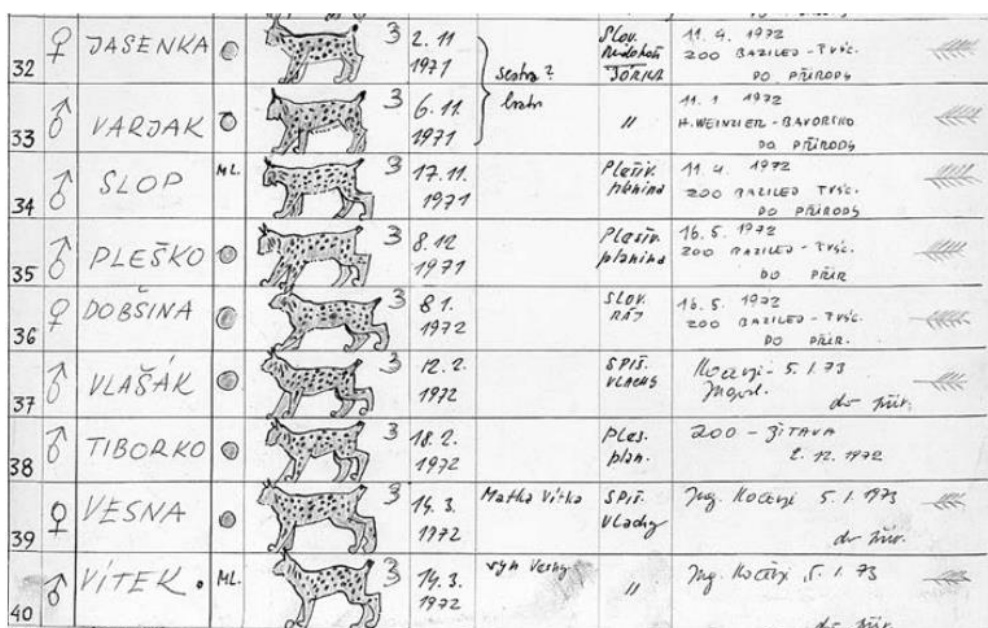 32 ♀ JASENKA 3 2. 11 1971 sestra ? Slov. 11. 4. 1972
ZOO BAZILEJ - ŠVÝC.
DO PŘÍRODY
33 ♂ VARJAK 3 6. 11. 1971 bratr 〃 11. 1 1972
H. WEINZIERL - BAVORSKO
DO PŘÍRODY
34 ♂ SLOP ML. 3 17. 11. 1971 Plešiv. planina 11. 4. 1972
ZOO BAZILEJ ŠVÝC.
DO PŘÍRODY
35 ♂ PLEŠKO 3 8. 12 1971 Plešiv. planina 16. 5. 1972
ZOO BAZILEJ - ŠVÝC.
DO PŘÍR
36 ♀ DOBŠINA 3 8 1. 1972 SLOV. RÁJ 16. 5. 1972
ZOO BAZILEJ - ŠVÝC.
DO PŘÍR.
37 ♂ VLAŠÁK 3 12. 2. 1972 SPIŠ. VLACHY 5. 1. 73
Jugosl.
do přír.
38 ♂ TIBORKO 3 18. 2. 1972 Ples. plan. ZOO - ŽITAVA
2. 12. 1972
39 ♀ VESNA 3 14. 3. 1972 Matka Vítka SPIŠ. Vlachy Ing. 5. 1. 1973
do přír.
40 ♂ VÍTEK. ML. 3 14. 3. 1972 syn Vesny 〃 Ing. 5. 1. 73
do přír.